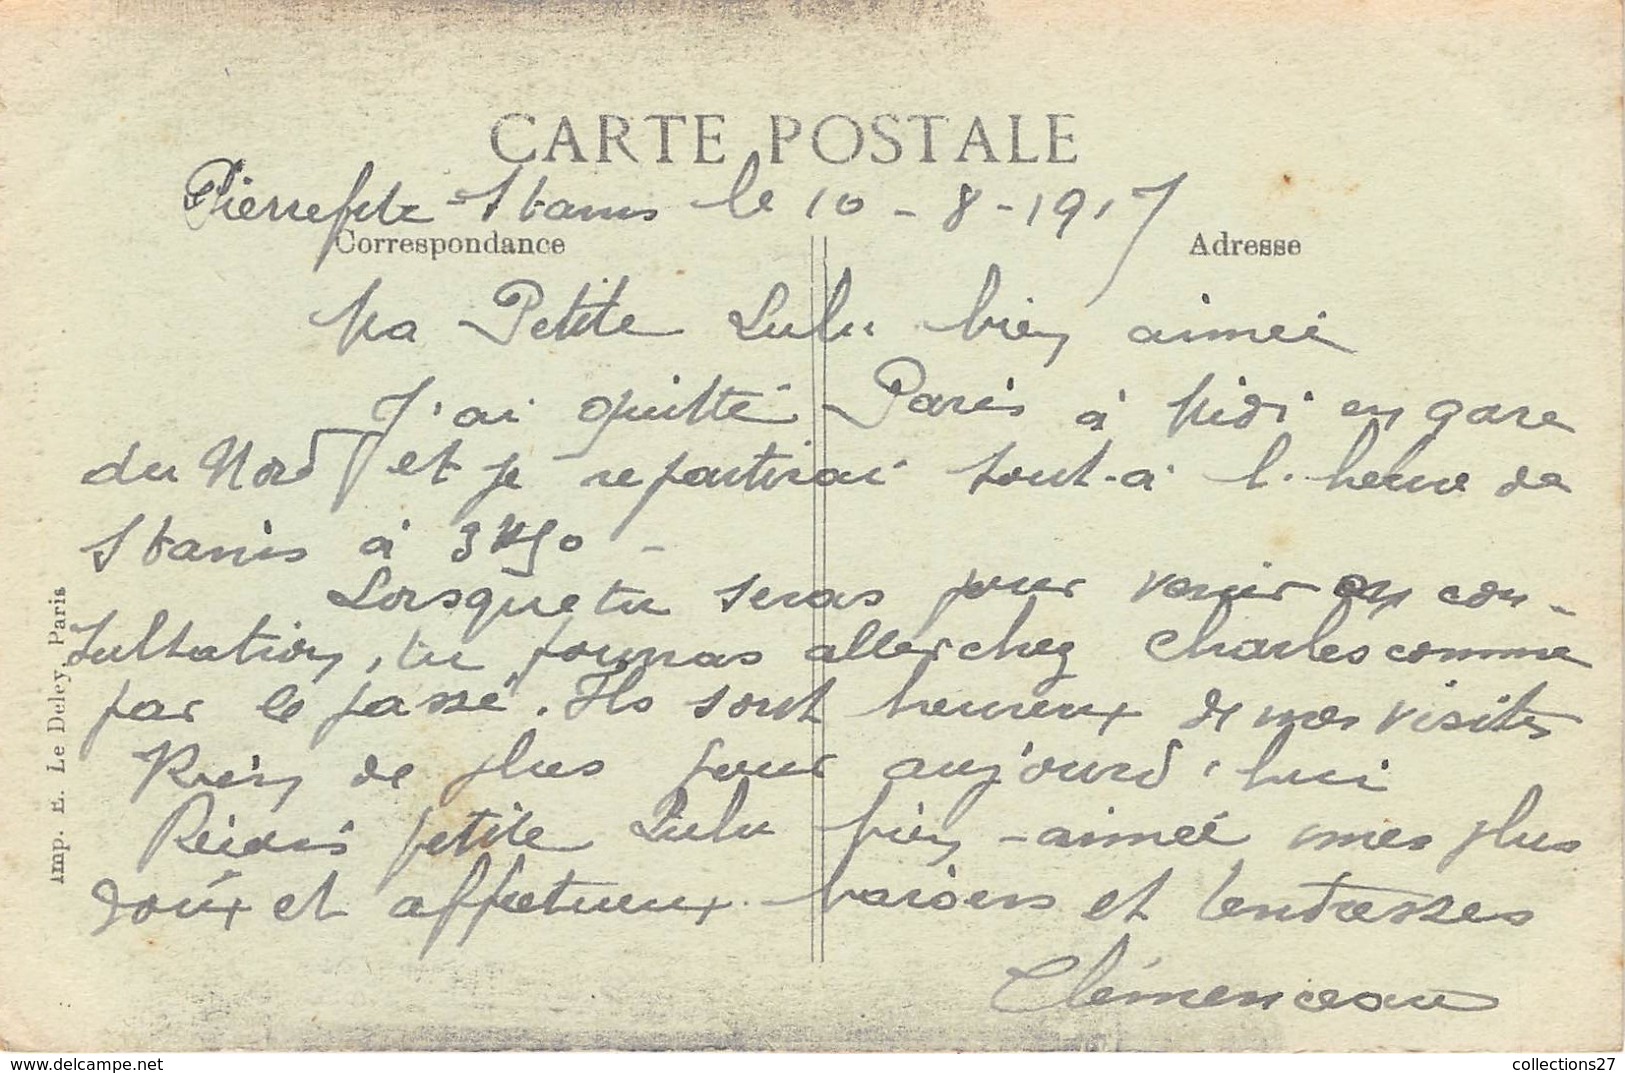 CARTE POSTALE
Pierrefitte-Stains le 10-8-1917
Correspondance
Adresse
Ma Petite Lulu bien aimée
J'ai quitté Paris à Midi en gare
du Nord et je repartirai tout-à l'heure de
Stains à 3h50 -
Lorsque tu seras pour venir en con-
sultation, tu pourras aller chez Charles comme
par le passé. Ils sont heureux de mes visites
Rien de plus pour aujourd'hui
Reçois petite Lulu bien-aimée mes plus
doux et affectueux baisers et tendresses
Clémenceau
Imp. E. Le Deley, Paris
collections27